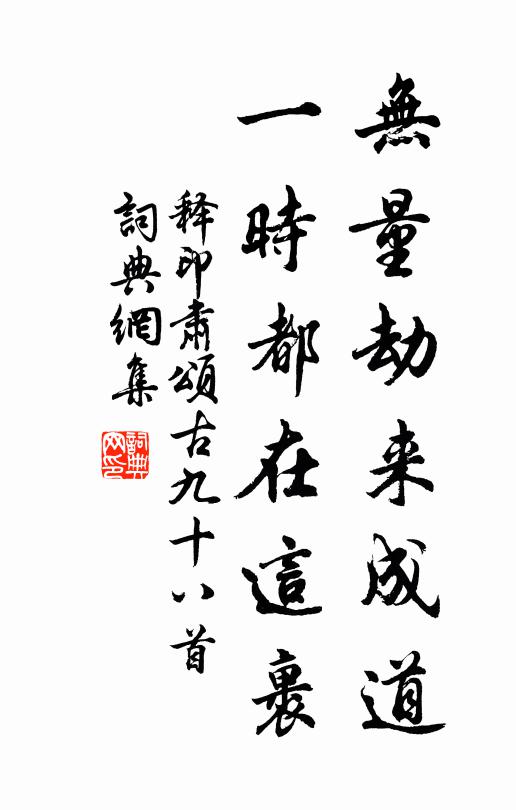 無量劫来成道
一時都在這裹
释印肅頌古九十八首
詞典網集
詞典网印